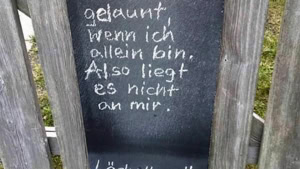 gelaunt,
wenn ich
allein bin.
Also liegt
es nicht
an mir.